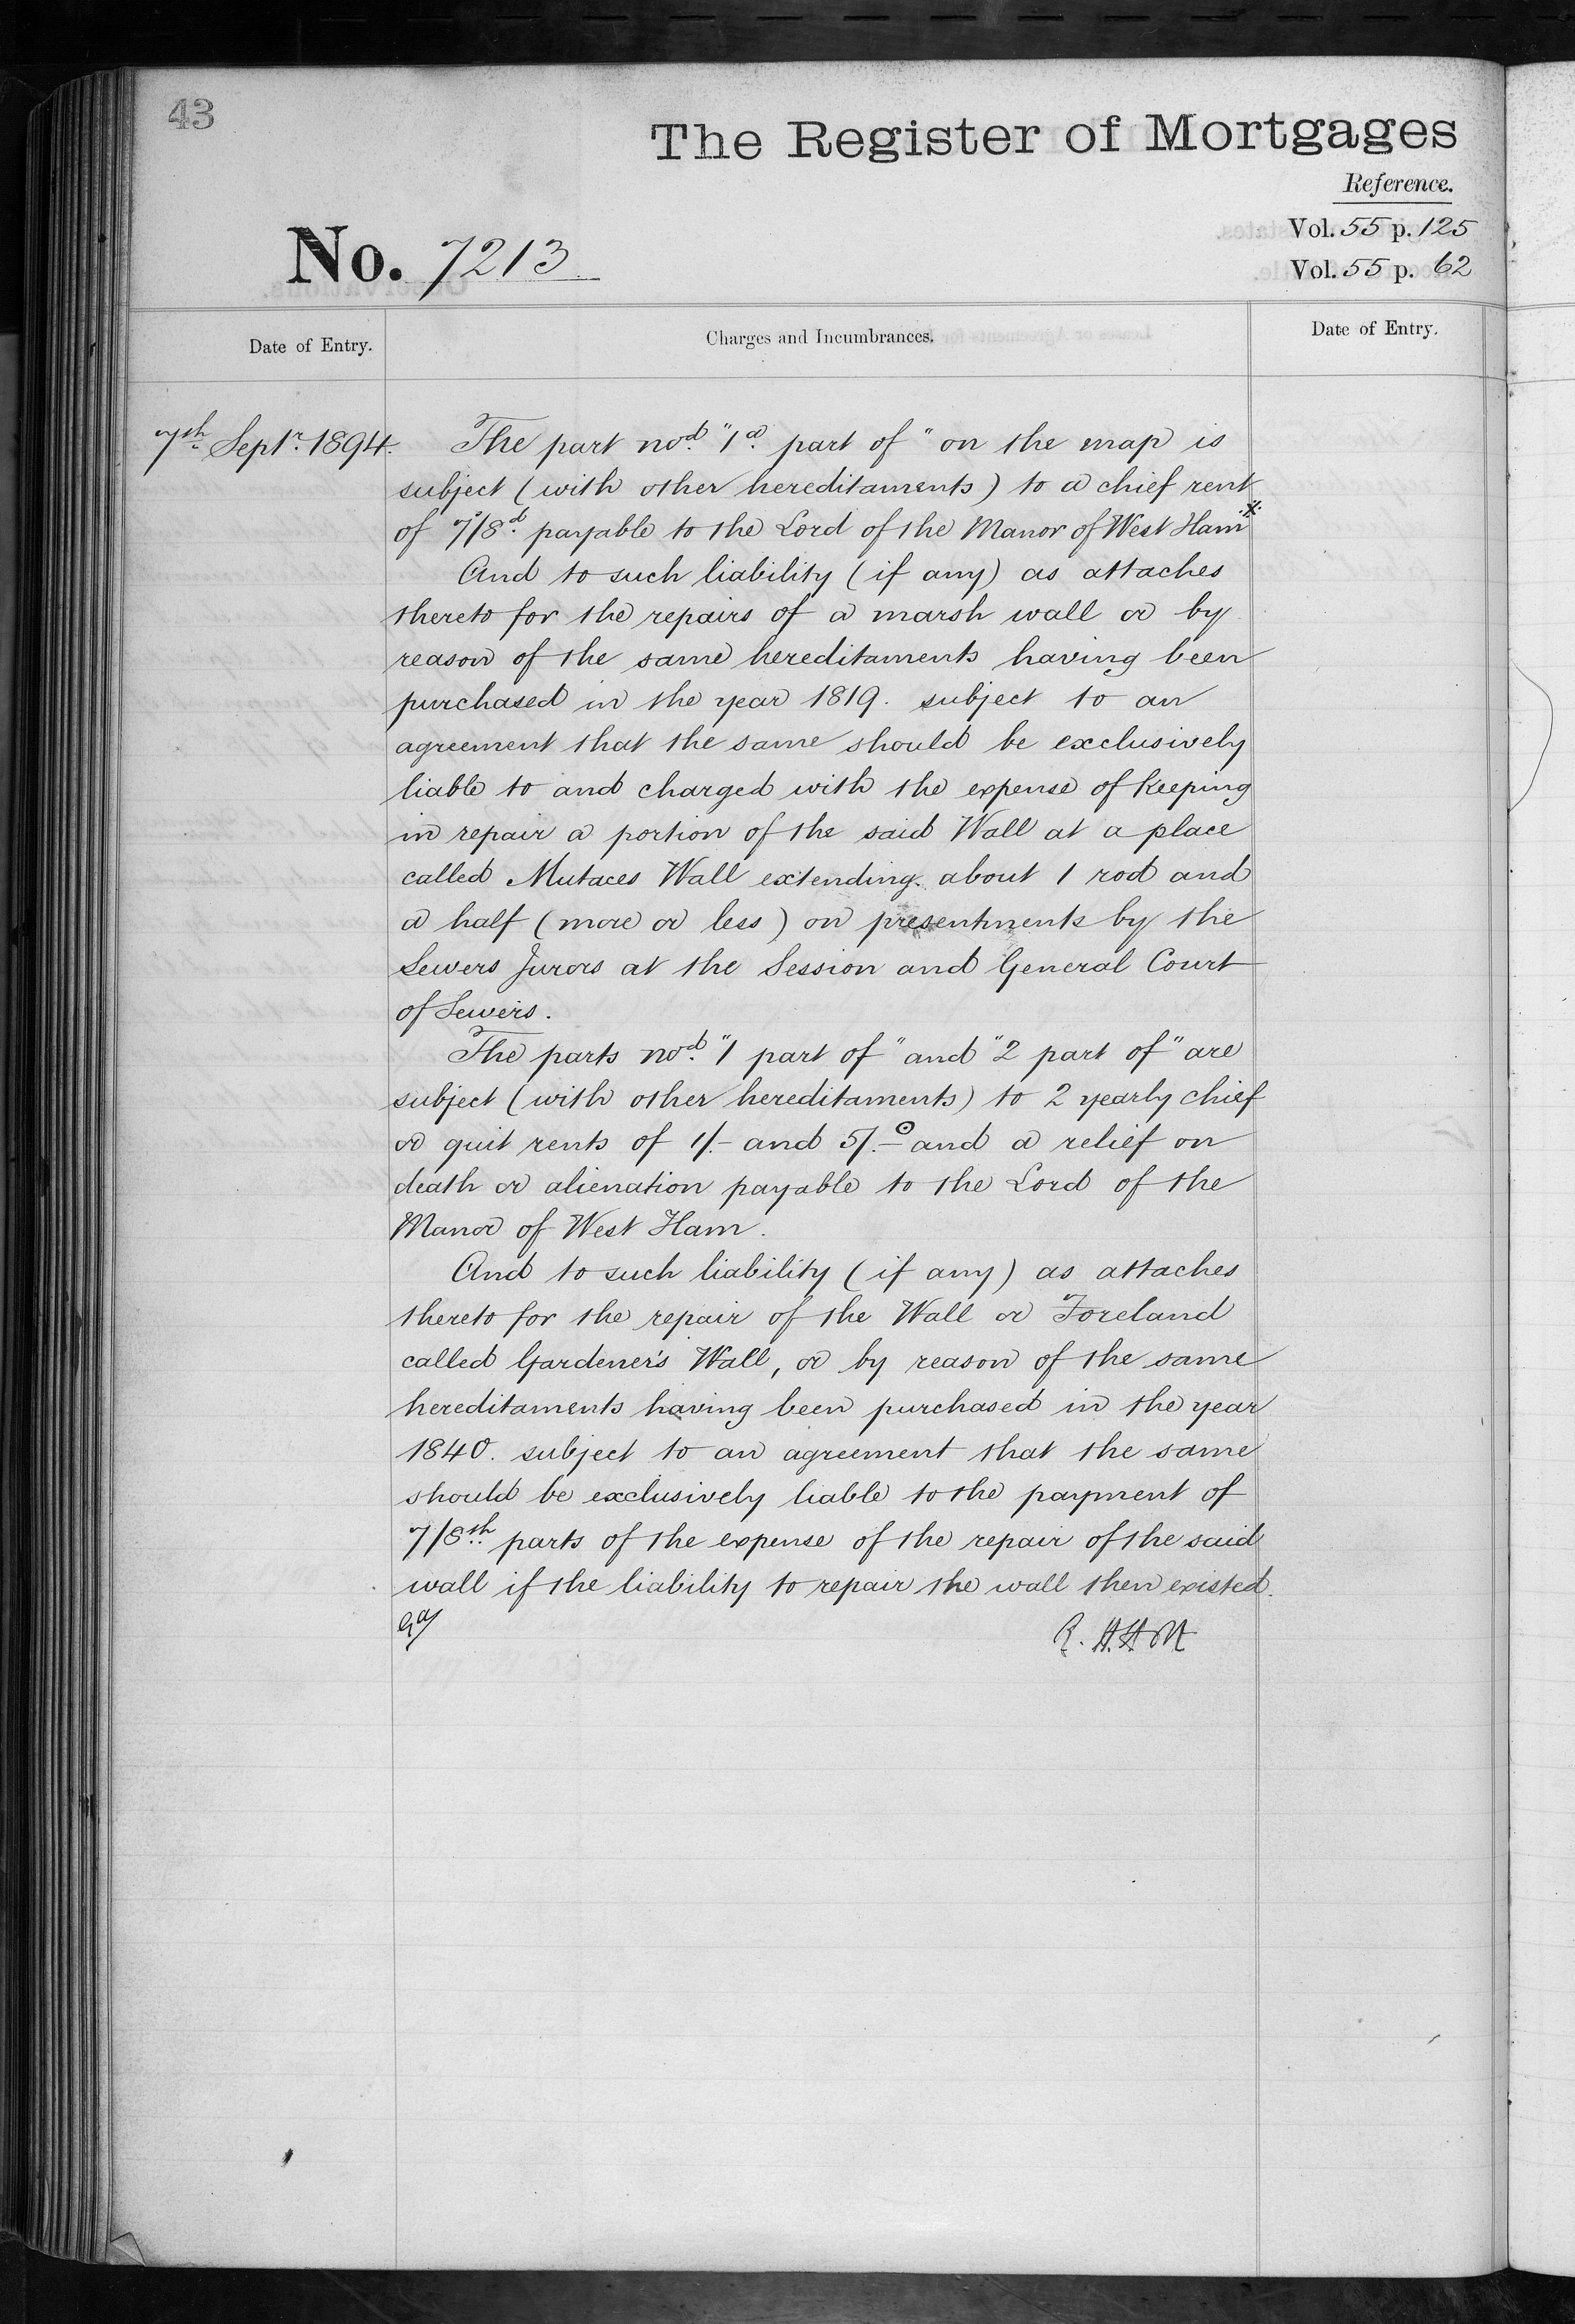 43
The Register of Mortgages
Reference.
Vol. 55 p. 125
No. 7213
Vol. 55 p. 62
Date of Entry.
Charges and Incumbrances.
Date of Entry.
7th Septr. 1894.
The part nod. "1a. part of" on the map is
subject (with other hereditaments) to a chief rent
of 7s/8d. payable to the Lord of the Manor of West Ham
And to such liability (if any) as attaches
thereto for the repairs of a marsh wall or by
reason of the same hereditaments having been
purchased in the year 1819. subject to an
agreement that the same should be exclusively
liable to and charged with the expense of keeping
in repair a portion of the said Wall at a place
called Mutaces Wall extending about 1 rod and
a half (more or less) on presentments by the
Sewers Jurors at the Session and General Court
of Sewers.
The parts nod. "1 part of" and "2 part of" are
subject (with other hereditaments) to 2 yearly chief
or quit rents of 1/- and 5/- and a relief on
death or alienation payable to the Lord of the
Manor of West Ham.
And to such liability (if any) as attaches
thereto for the repair of the Wall or Foreland
called Gardener's Wall, or by reason of the same
hereditaments having been purchased in the year
1840. subject to an agreement that the same
should be exclusively liable to the payment of
7/8th parts of the expense of the repair of the said
wall if the liability to repair the wall then existed.